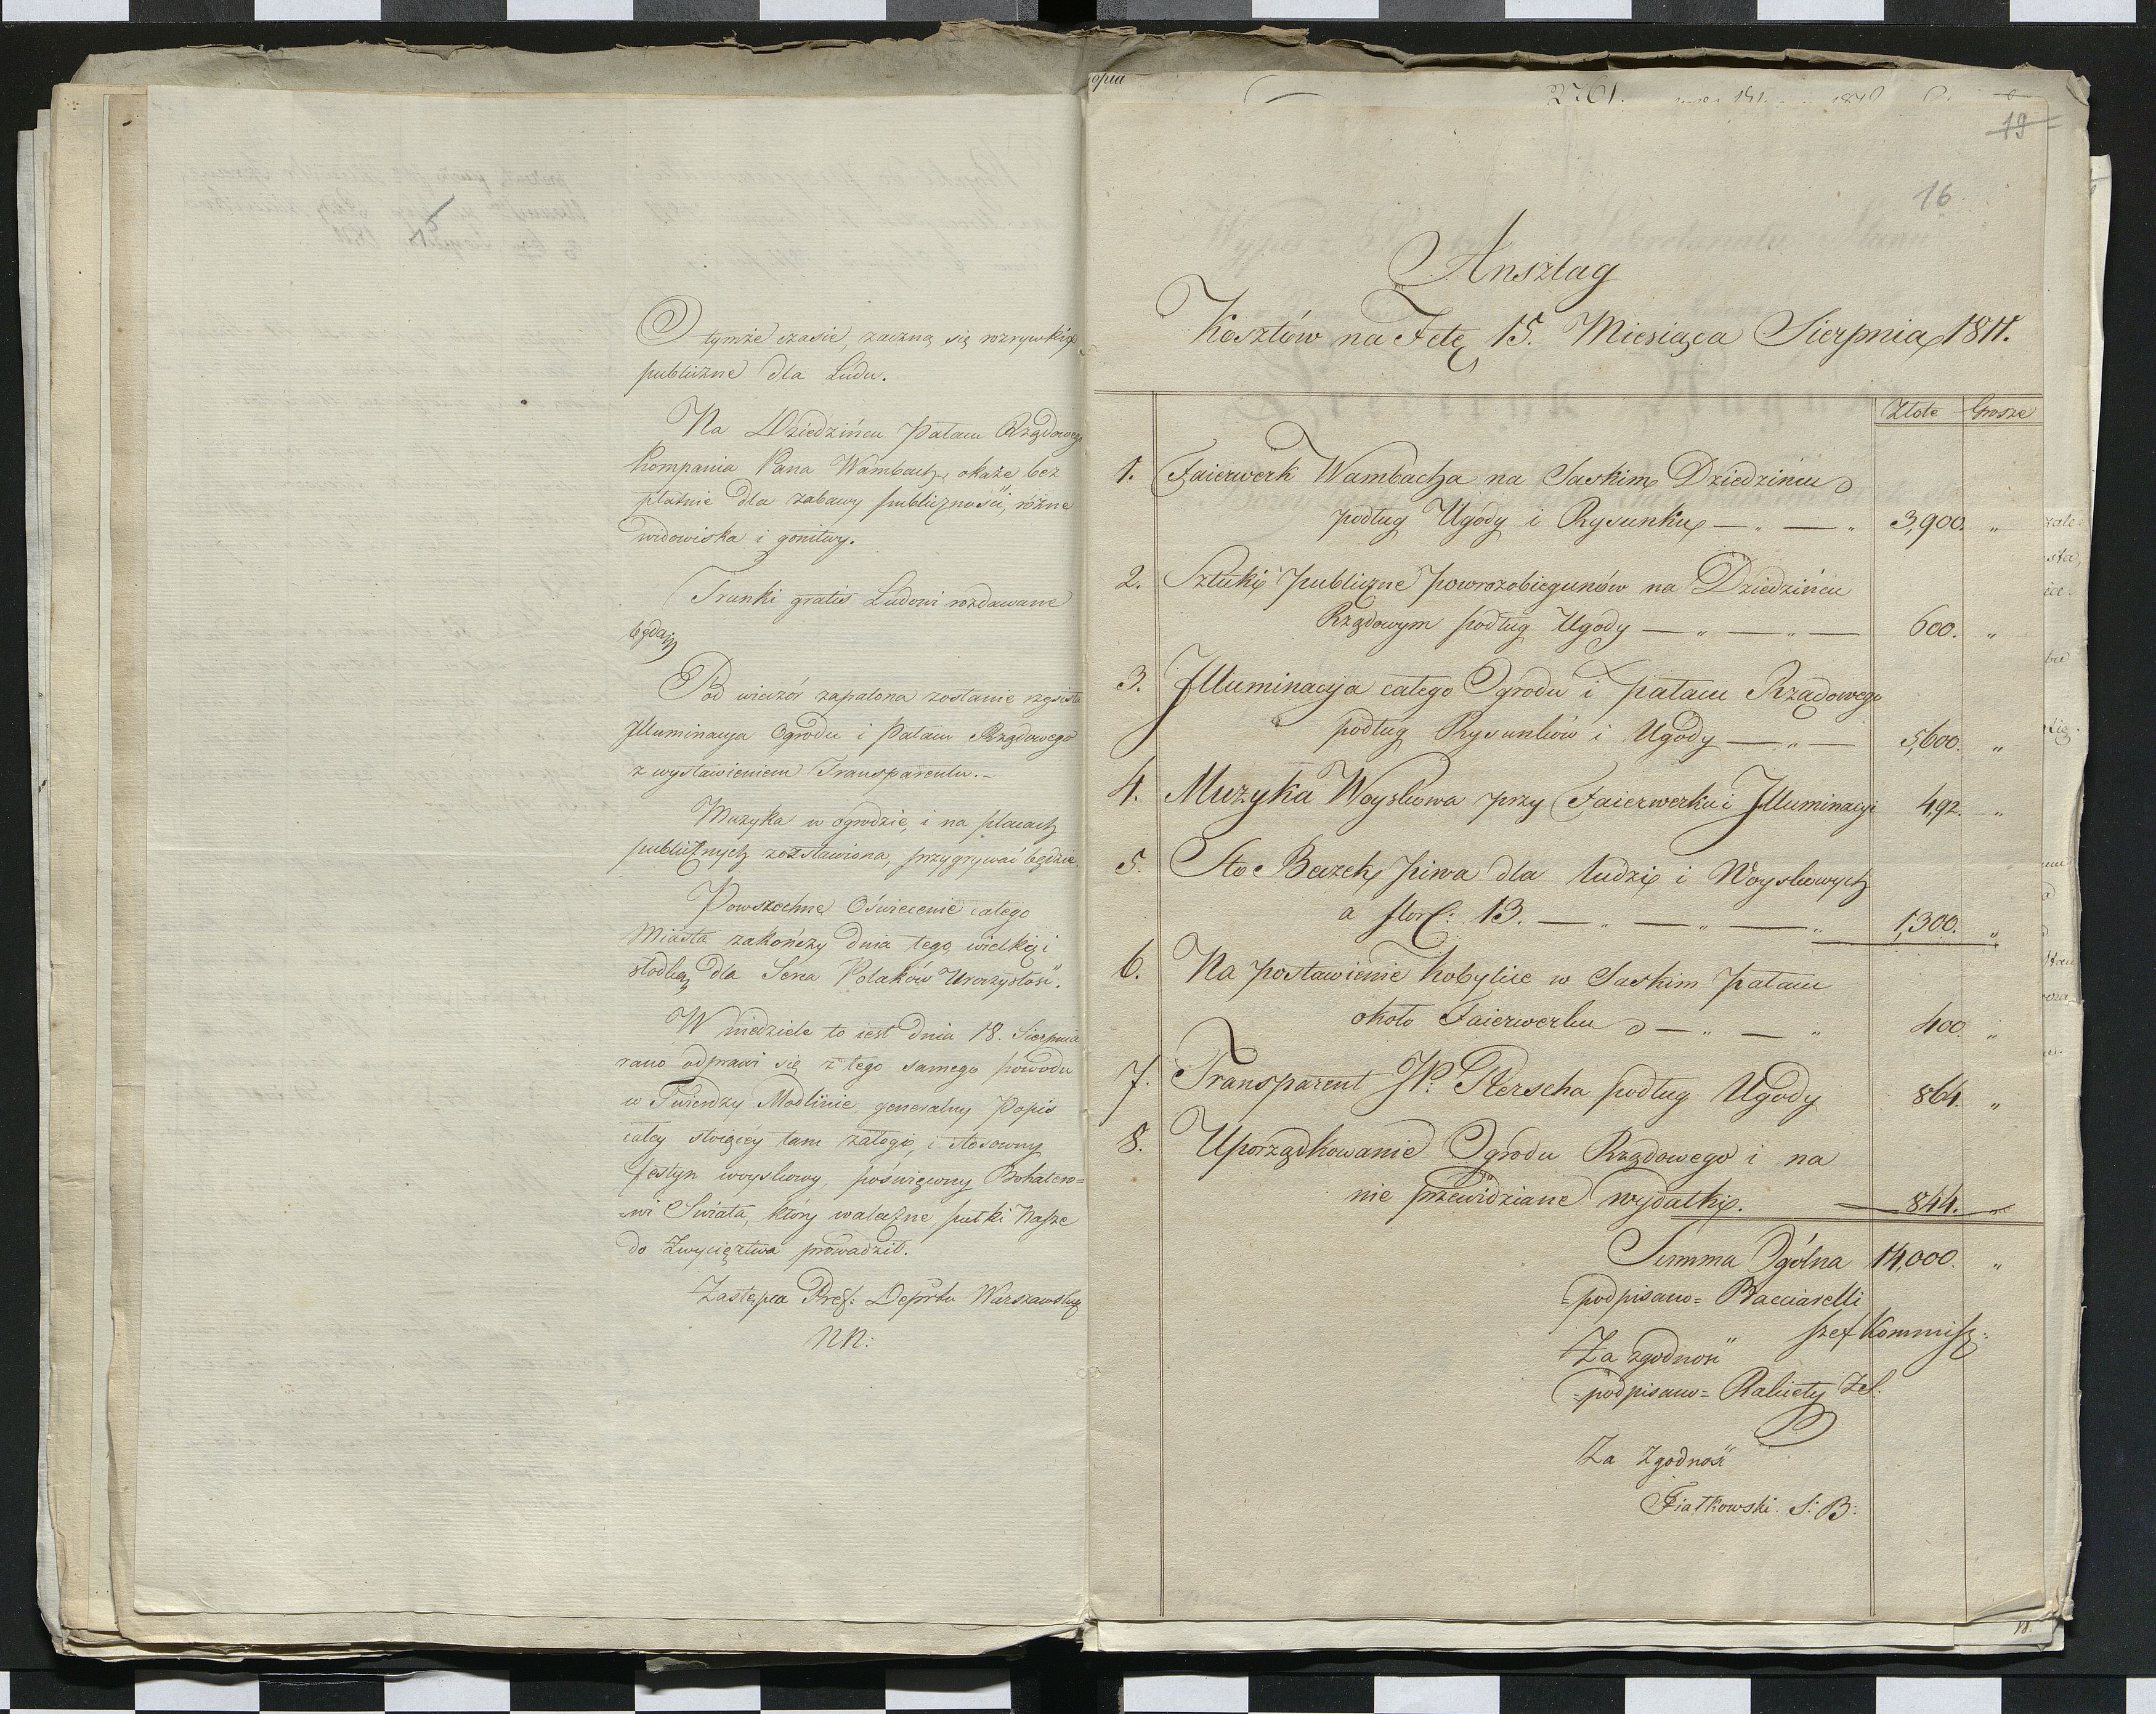 15
O tymże czasie, zaczną się rozrywki
publiczne dla Ludu.
Na Dziedzińcu Pałacu Rządowego
Kompania Pana Wambach, okaże bez
płatnie dla zabawy publiczności, różne
widowiska i gonitwy.
Trunki gratis Ludowi rozdawane
będą
Pod wieczór zapalona zostanie rzęsista
Illuminacya Ogrodu i Pałacu Rządowego
z wystawieniem Transparentu.-
Muzyka w ogrodzie, i na placach
publicznych rozstawiona, przygrywać będzie.
Powszechne Oświecenie całego
Miasta zakończy dnia tego, wielką i
słodką dla Serca Polaków Uroczystość.
W niedziele to iest dnia 18. Sierpnia
rano odprawi się z tego samego powodu
w Twierdzy Modlinie, generalny Popis
całey stoiącey tam załogi, i stosowny
festyn woyskowy, poświęcony Bohatero=
=wi Swiata, który waleczne pułki Nasze
do Zwycięztwa prowadził.
Zastępca Pref: Deprtu Warszawsk
NN:
opia
2701.
19
16
Anszlag
Kosztów na Fetę 15. Miesiąca Sierpnia 1811.
Złote Grosze
1. Faierwerk Wambacha na Saskim Dziedzińcu
podług Ugody i Rysunku — „ — „ 3,900. „
2. Sztuki publiczne powrozobiegunów na Dziedzińcu
Rządowym podług Ugody — „ — „ — 600. „
3. Illuminacyja całego Ogrodu i pałacu Rządowego
podług Rysunków i Ugody — „ — 5,600. „
4. Muzyka Woyskowa przy Faierwerku i Illuminacyi 492. „
5. Sto Beczek piwa dla ludzi i Woyskowych
a flor: 13. — „ — „ — „ 1,300. „
6. Na postawienie kobylic w Saskim pałacu
około Faierwerku — „ — „ 400. „
7. Transparent JP. Plerscha podług Ugody 864. „
8. Uporządkowanie Ogrodu Rządowego i na
nie przewidziane wydatki. — 844. „
Summa Ogólna 14,000. „
=podpisano= Bacciarelli
szef Kommiss:
Za zgodność
=podpisano= Rakiety
Za Zgodność
Fiałkowski S: B: